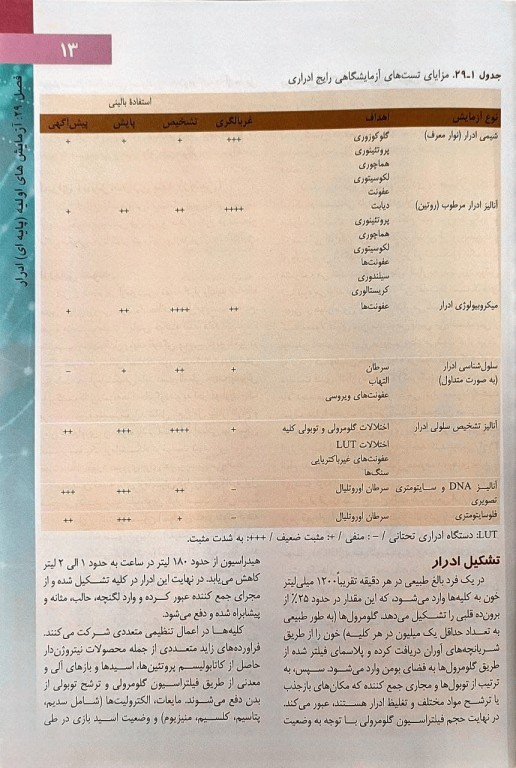 ۱۳
فصل ۲۹. آزمایش های اولیه (پایه ای) ادرار
جدول ۱-۲۹. مزایای تست‌های آزمایشگاهی رایج ادراری
استفادهٔ بالینی
نوع آزمایش اهداف غربالگری تشخیص پایش پیش‌آگهی
شیمی ادرار (نوار معرف) گلوکوزوری +++ + + +
پروتئینوری
هماچوری
لکوسیتوری
عفونت
آنالیز ادرار مرطوب (روتین) دیابت ++++ ++ ++ +
پروتئینوری
هماچوری
لکوسیتوری
عفونت‌ها
سیلندوری
کریستالوری
میکروبیولوژی ادرار عفونت‌ها ++ ++++ ++ +
سلول‌شناسی ادرار سرطان + ++ + –
(به صورت متداول) التهاب
عفونت‌های ویروسی
آنالیز تشخیص سلولی ادرار اختلالات گلومرولی و توبولی کلیه + ++++ +++ ++
اختلالات LUT
عفونت‌های غیرباکتریایی
سنگ‌ها
آنالیـز DNA و سـایتومتری سرطان اوروتلیال – ++ +++ +++
تصویری
فلوسایتومتری سرطان اوروتلیال – + +++ ++
LUT: دستگاه ادراری تحتانی / – : منفی / +: مثبت ضعیف / +++: به شدت مثبت.
تشکیل ادرار
در یک فرد بالغ طبیعی در هر دقیقه تقریباً ۱۲۰۰ میلی‌لیتر
خون به کلیه‌ها وارد می‌شود، که این مقدار در حدود ۲۵٪ از
برون‌ده قلبی را تشکیل می‌دهد. گلومرول‌ها (به طور طبیعی
به تعداد حداقل یک میلیون در هر کلیـه) خون را از طریق
شریانچه‌های آوران دریافت کرده و پلاسمای فیلتر شده از
طریق گلومرول‌ها به فضای بومن وارد می‌شود. سـپس، به
ترتیب از توبول‌ها و مجاری جمع کننده که مکان‌های بازجذب
یا ترشح مواد مختلف و تغلیظ ادرار هستند، عبور می‌کند.
در نهایت حجم فیلتراسیون گلومرولی بـا توجه به وضعیت
هیدراسیون از حدود ۱۸۰ لیتر در ساعت به حدود ۱ الی ۲ لیتر
کاهش می‌یابد. در نهایت این ادرار در کلیه تشـکیل شده و از
مجرای جمع کننده عبور کرده و وارد لگنچه، حالب، مثانه و
پیشابراه شده و دفع می‌شود.
کلیه‌ها در اعمال تنظیمی متعددی شـرکت می‌کنند.
فرآورده‌های زاید متعـددی از جمله محصولات نیتروژن‌دار
حاصل از کاتابولیسـم پروتئین‌ها، اسـیدها و بازهای آلی و
معدنی از طریق فیلتراسـیون گلومرولی و ترشح توبولی از
بدن دفع می‌شوند. مایعات، الکترولیت‌ها (شـامل سدیم،
پتاسیم، کلسـیم، منیزیوم) و وضعیت اسید بازی در طی